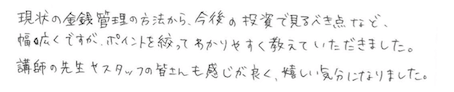 現状の金銭管理の方法から、今後の投資で見るべき点など、
幅広くですが、ポイントを絞ってわかりやすく教えていただきました。
講師の先生やスタッフの皆さんも感じが良く、嬉しい気分になりました。